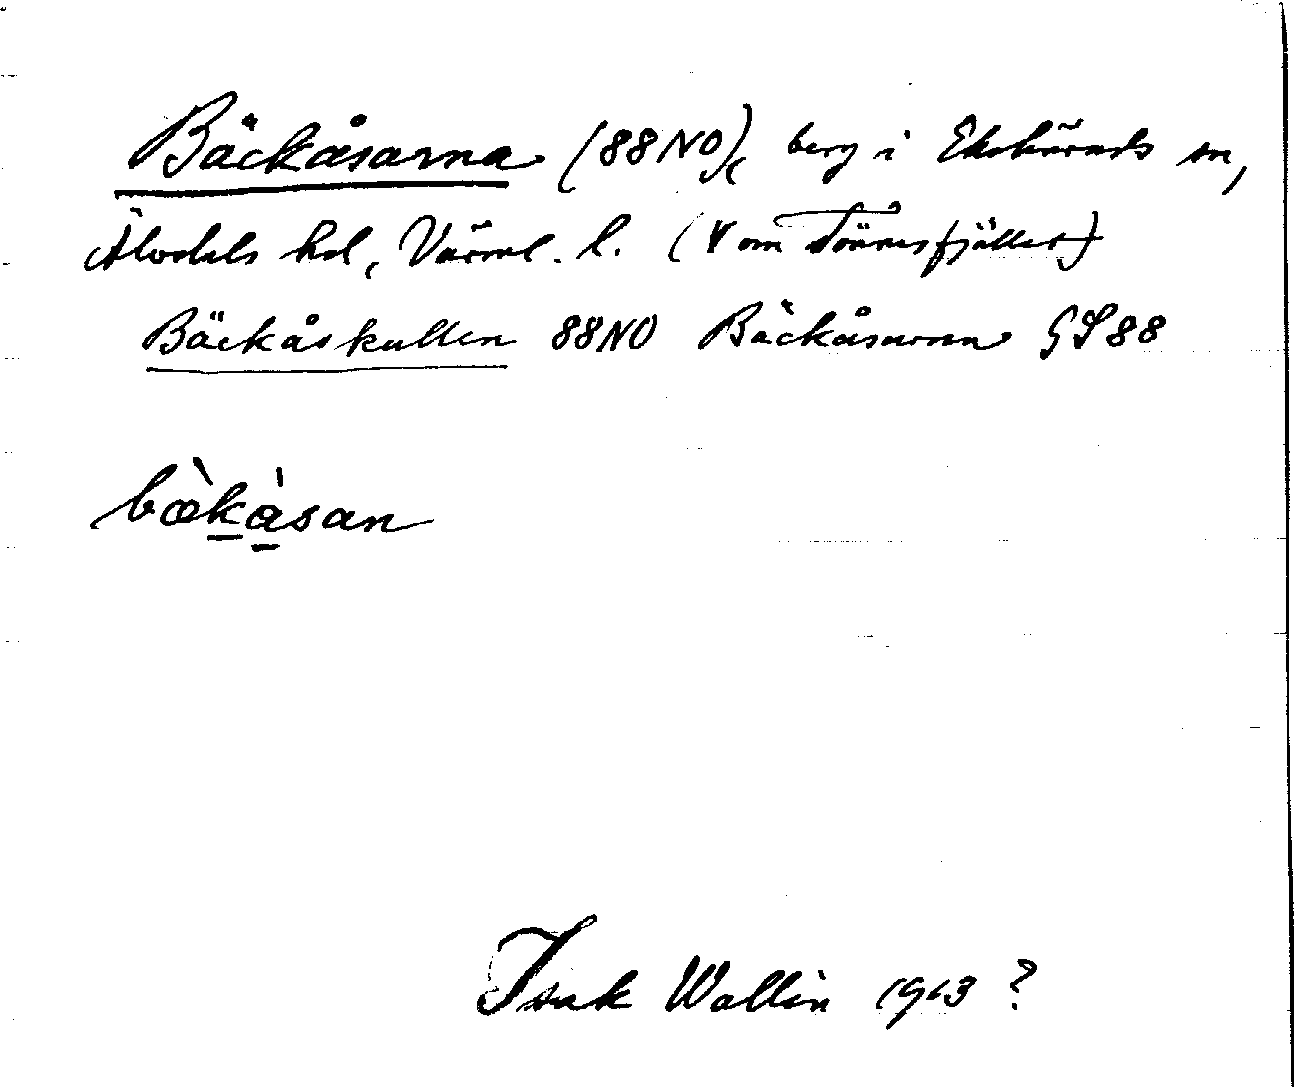 Bäckåsarna (88NO), berg i Ekshärads sn,
Älvdals hd, Värml. l. (V om Tönnesfjället)
Bäckåskullen 88NO Bäckåsarna GS88
bæ̀kàsan
Isak Wallin 1913?